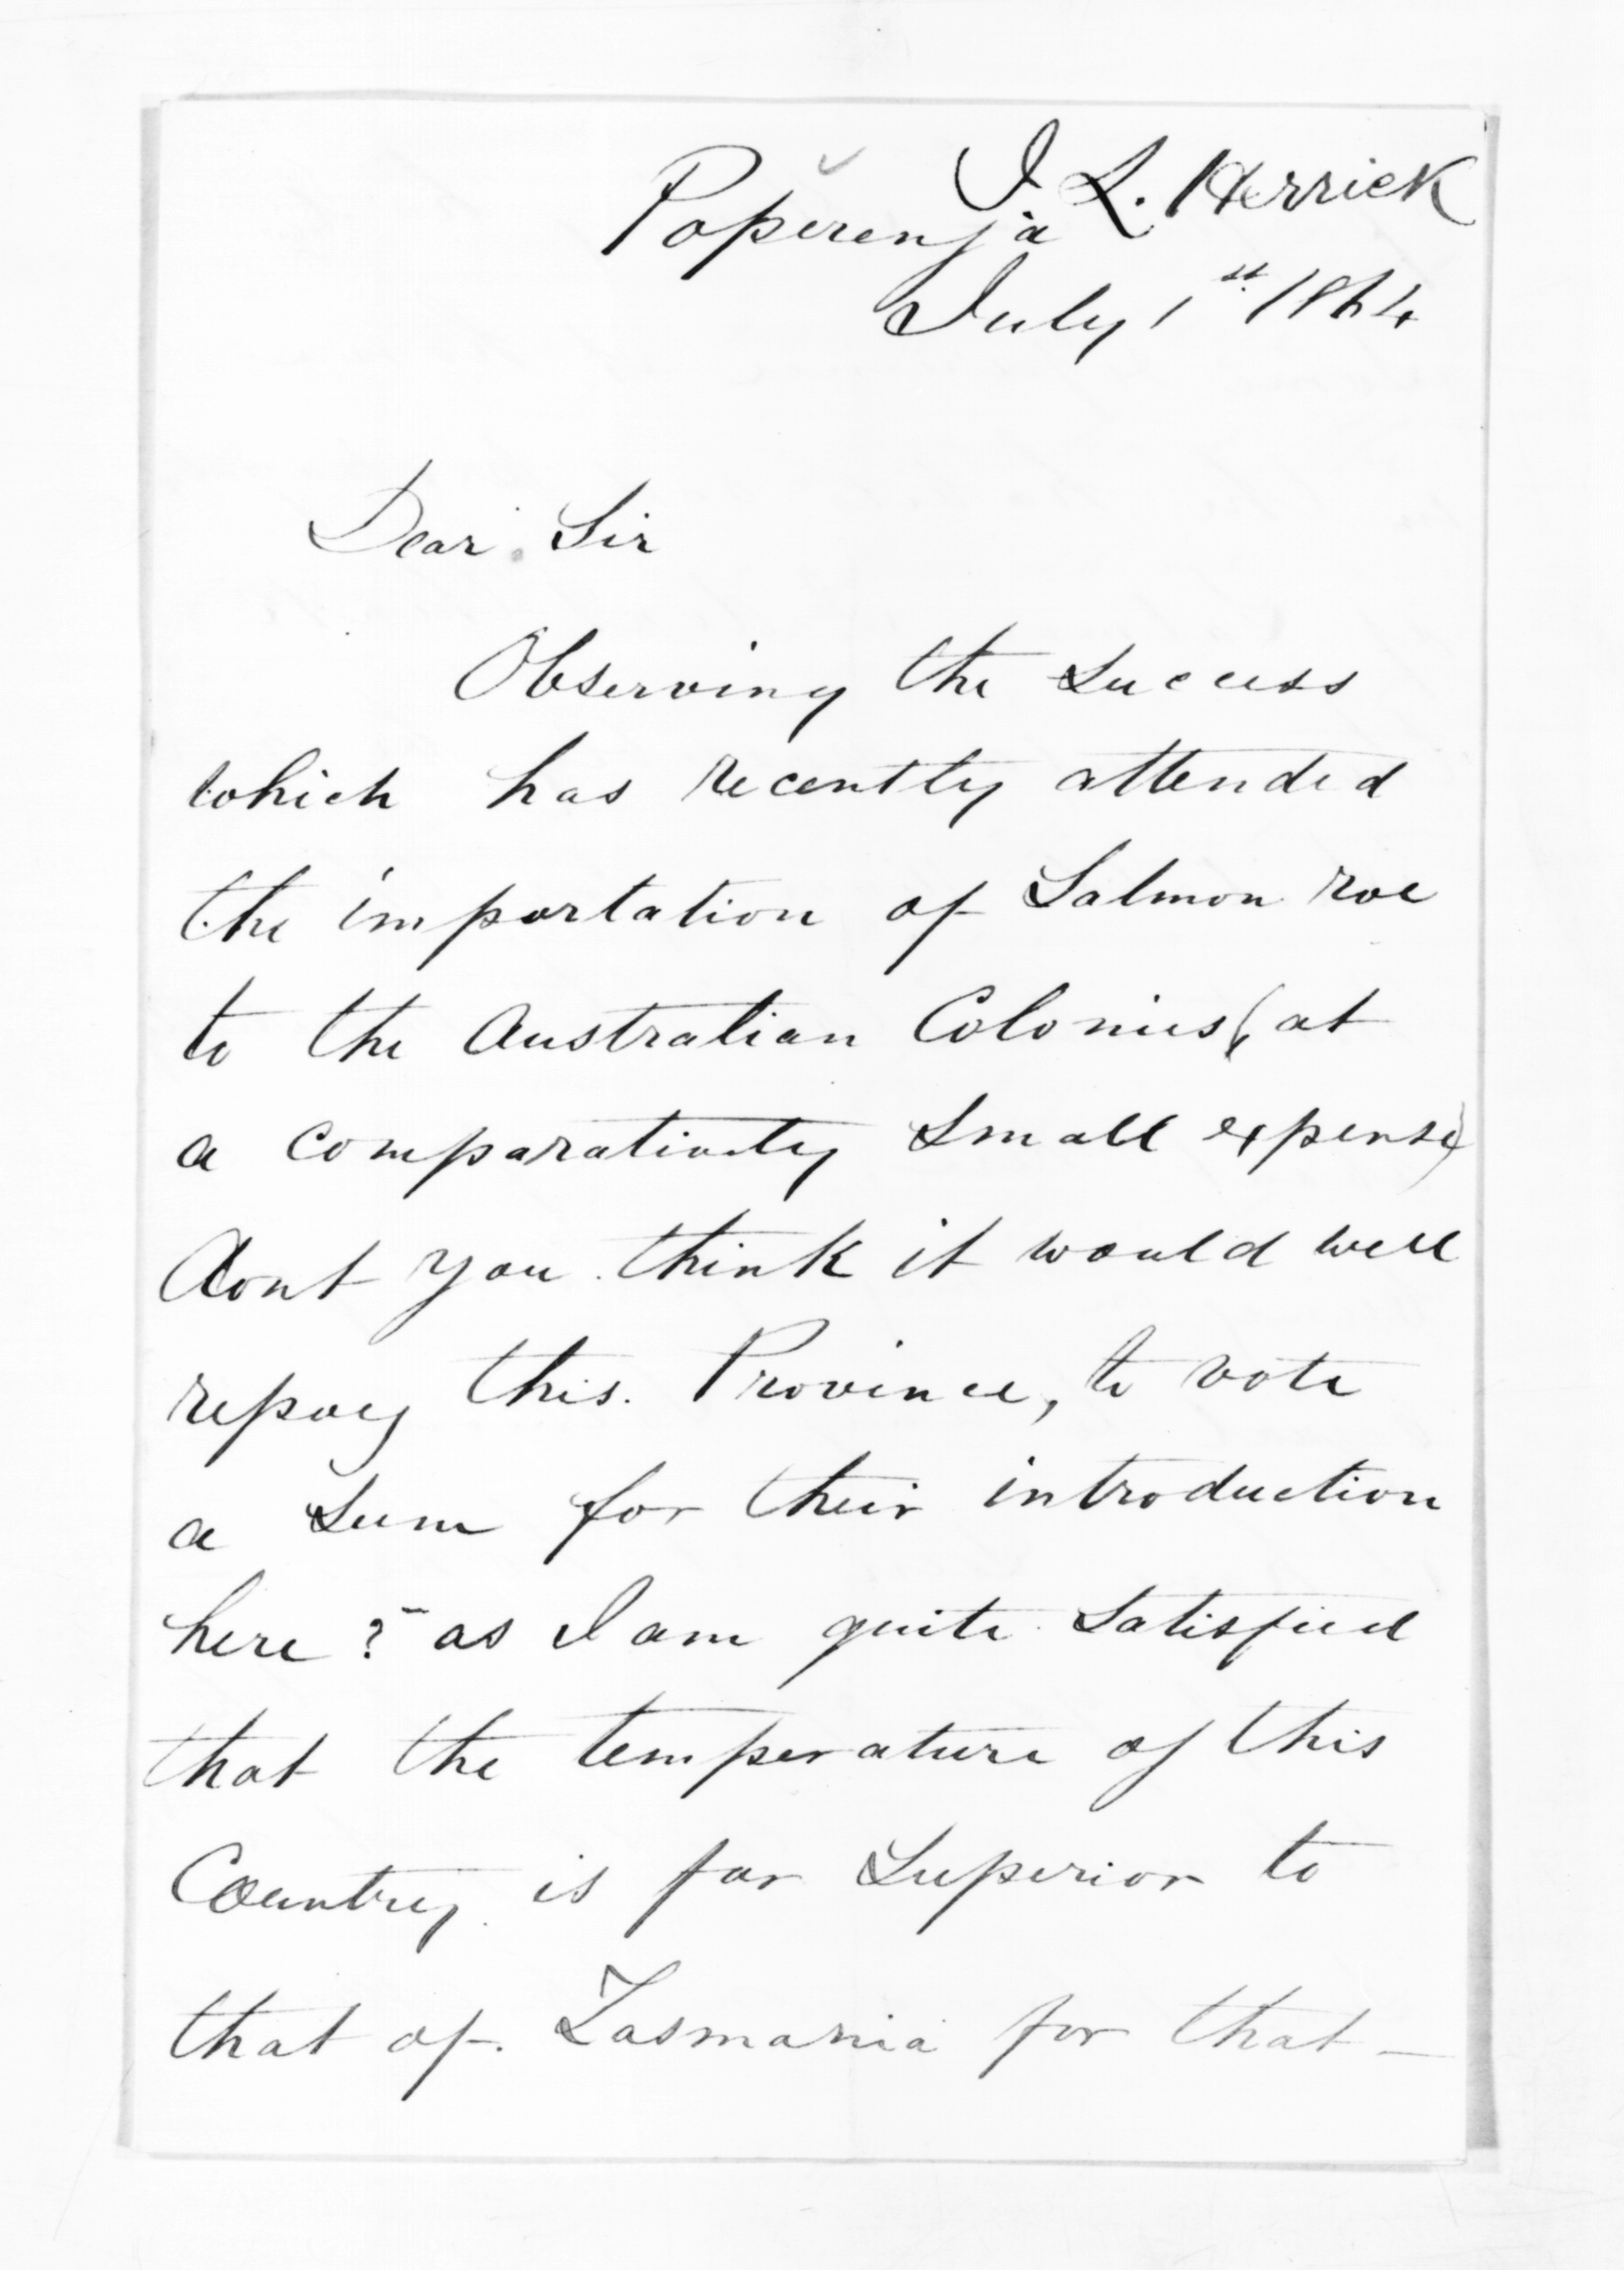 J. L. Herrick
Poperenja
July 1st. 1864
Dear Sir
Observing the Success
which has recently attended
the importation of Salmon roe
to the Australian Colonies (at
a comparatively Small expense)
dont you think it would well
repay this Province, to vote
a Sum for their introduction
here? as I am quite Satisfied
that the temperature of this
Country is far Superior to
that of Tasmania for that —